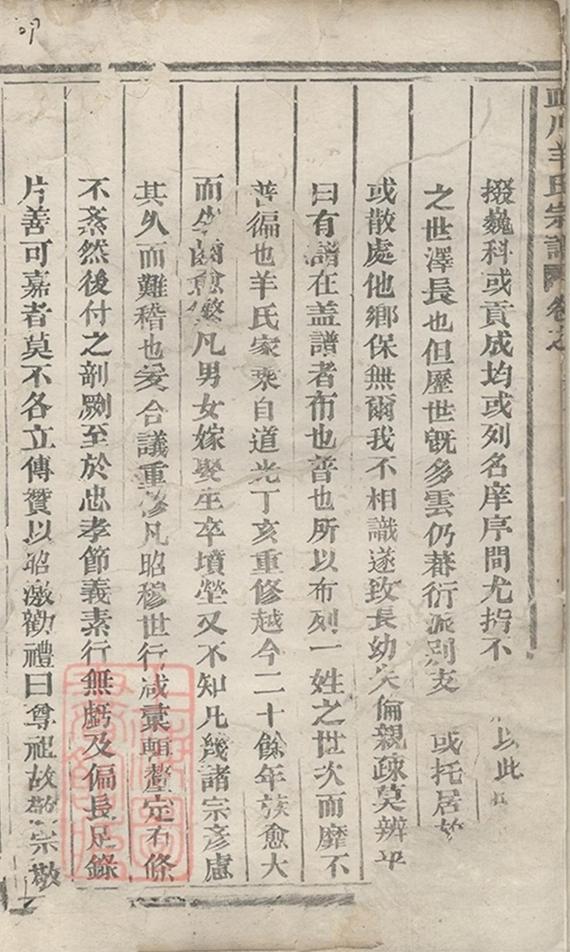 川羊氏宗譜 卷之
掇巍科或貢成均或列名庠序間尤指不 以此
之世澤長也但歷世旣多雲仍蕃衍派別支 或托居
或散處他鄉保無爾我不相識遂致長幼失倫親疎莫辨乎
曰有譜在盖譜者布也普也所以布列一姓之世次而靡不
普徧也羊氏家乘自道光丁亥重修越今二十餘年族愈大
而 齒愈繁凡男女嫁娶生卒墳塋又不知凡幾諸宗彥慮
其久而難稽也爰合議重修凡昭穆世行咸彙輯釐定有條
不紊然後付之剞劂至於忠孝節義素行無虧及偏長足錄
片善可嘉者莫不各立傳贊以昭激勸禮曰尊祖故敬宗敬